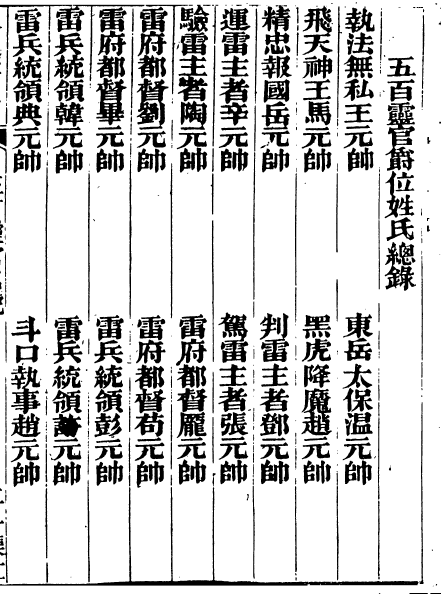 五百靈官爵位姓氏總錄
執法無私王元帥
東岳太保温元帥
飛天神王馬元帥
黑虎降魔趙元帥
精忠報國岳元帥
判雷主者鄧元帥
運雷主者辛元帥
駕雷主者張元帥
驗雷主者陶元帥
雷府都督龐元帥
雷府都督劉元帥
雷府都督茍元帥
雷府都督畢元帥
雷兵統領彭元帥
雷兵統領韓元帥
雷兵統領元帥
雷兵統領典元帥
斗口執事趙元帥